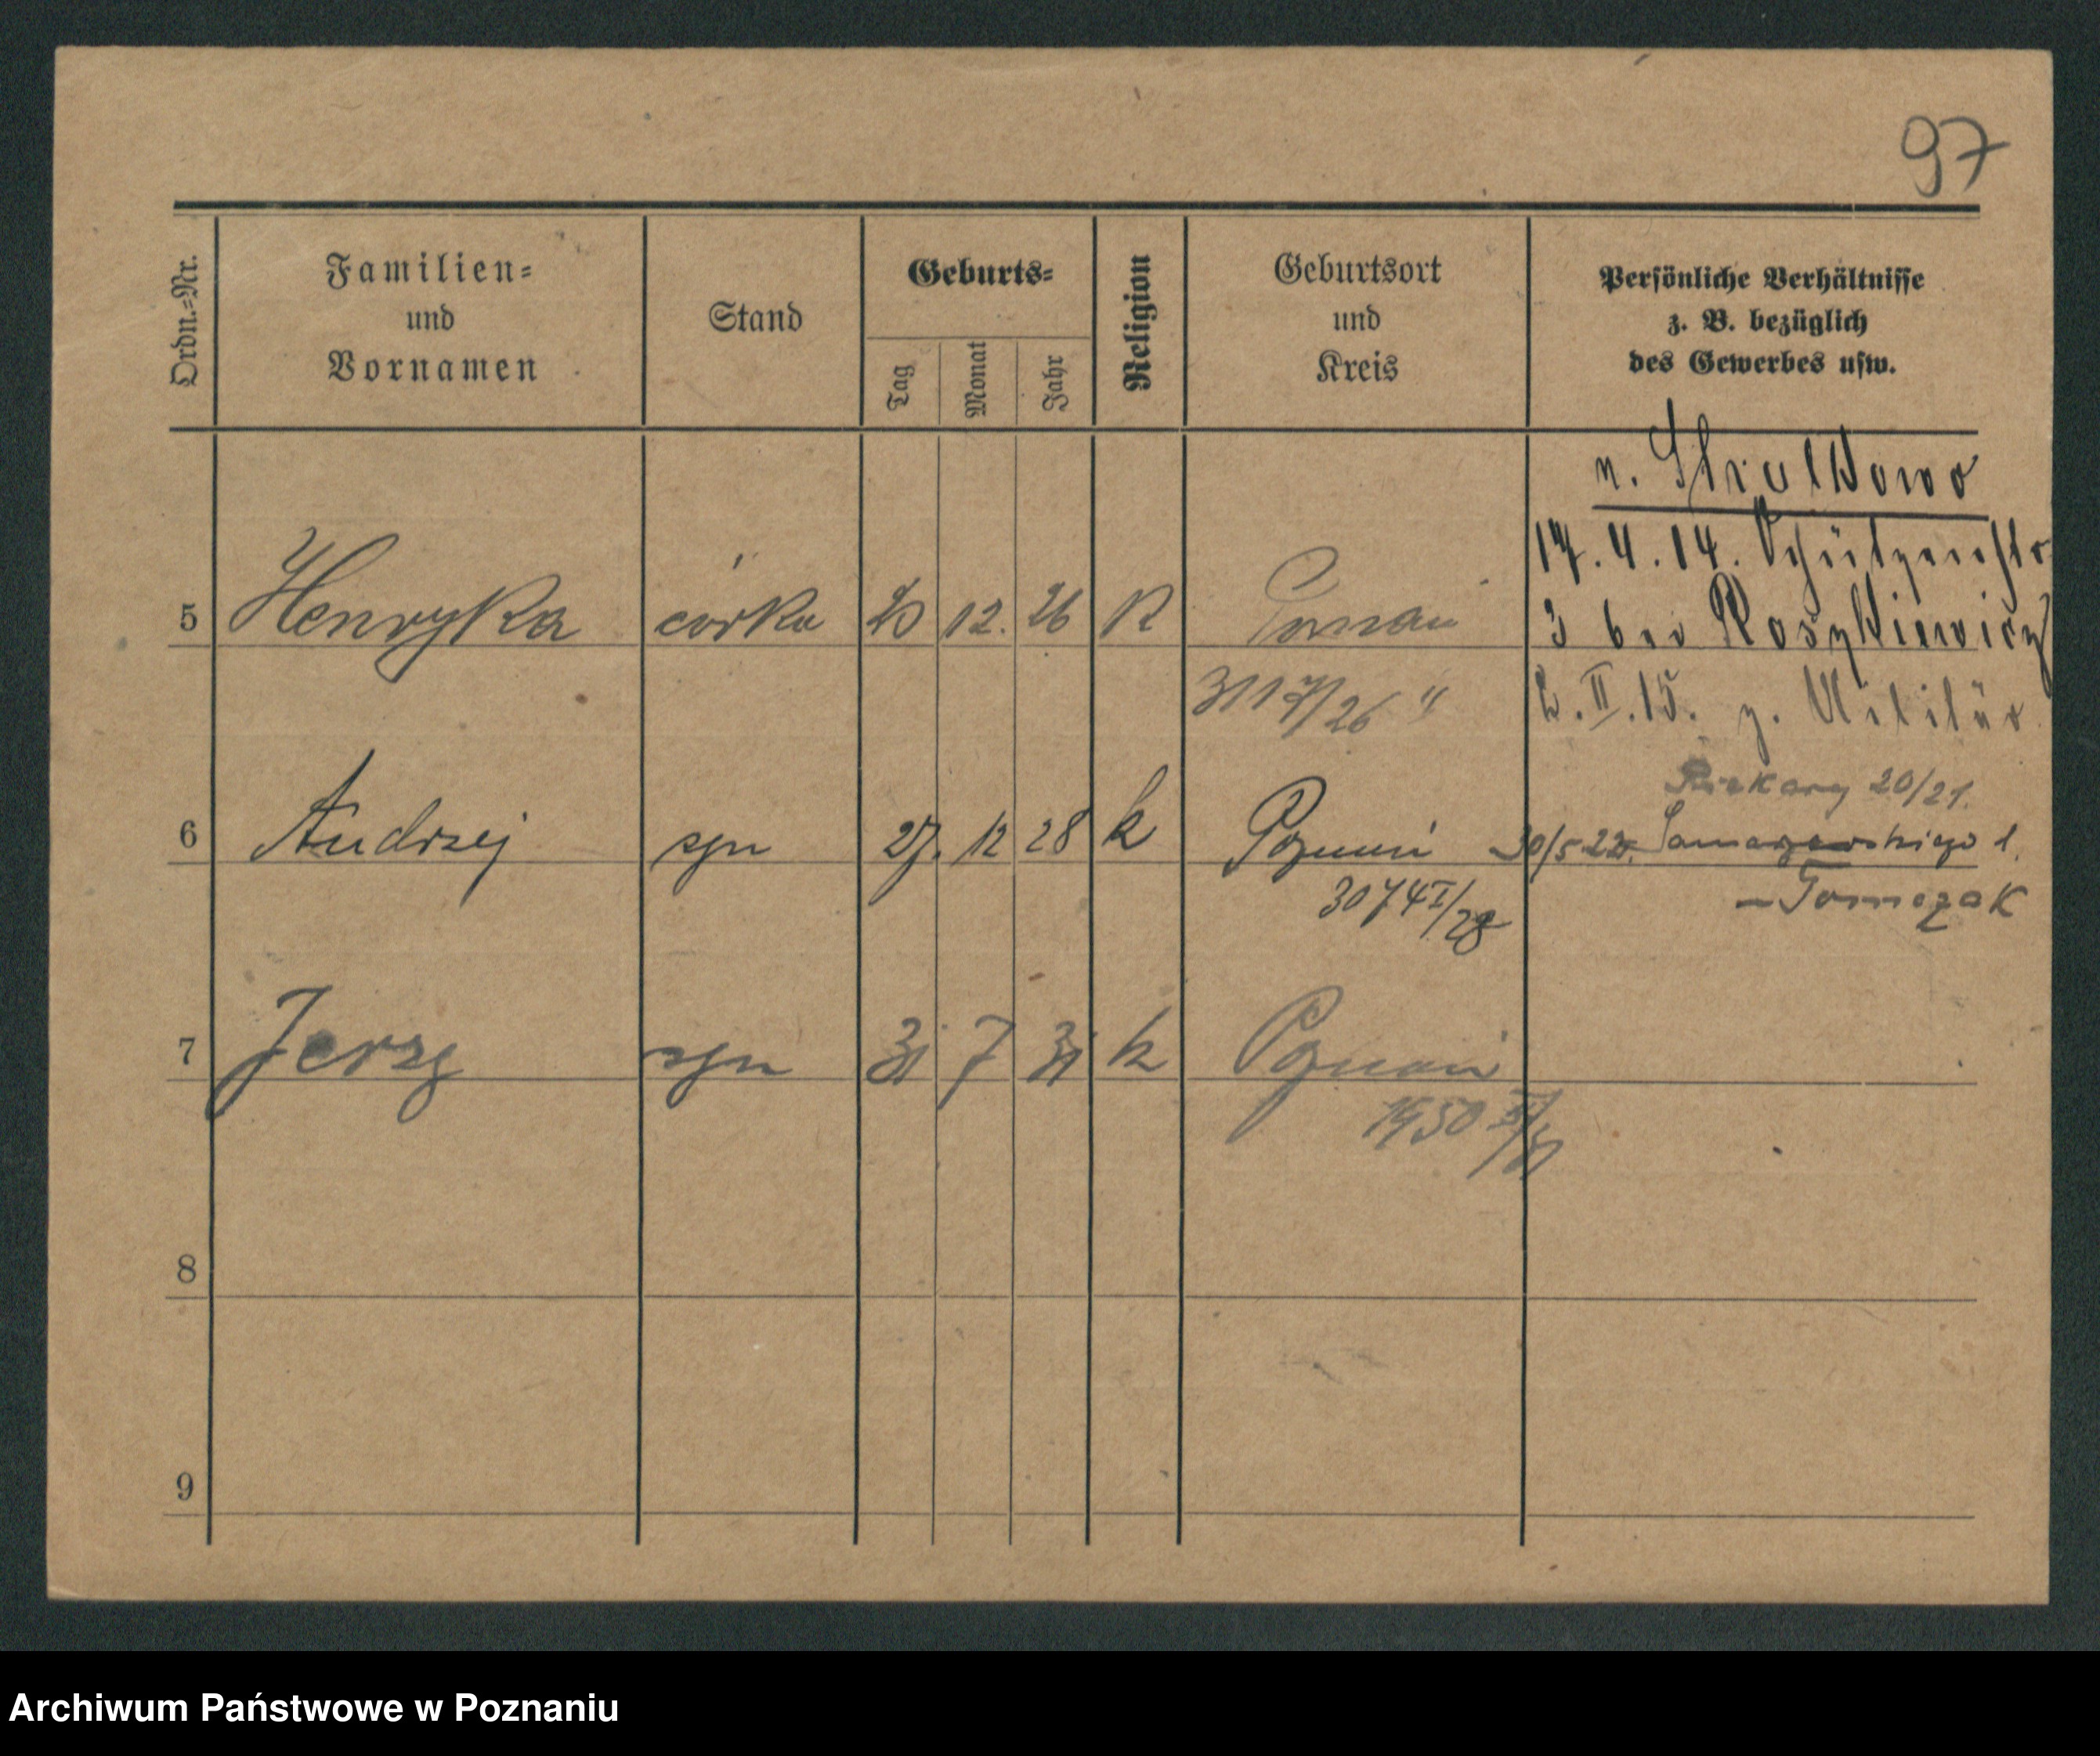 97
Ordn.-Nr.
Familien-
und
Vornamen
Stand
Geburts-
Tag
Monat
Jahr
Religion
Geburtsort
und
Kreis
Persönliche Verhältnisse
z. B. bezüglich
des Gewerbes usw.
n. Stralkowo
17.4.14. Schützenstr
3 bei Roszkiewicz
5 Henryka córka 12. 26 K Poznań
/26 "
2.II.15. z. Militär
Piekary 20/21.
6 Andrzej syn 27. 12 28 k Poznań
30/5 22. Samarzewskiego 1.
3074 I/28
– Tomczak
7 Jerzy syn 31 7 31 k Poznań
1950
8
9
Archiwum Państwowe w Poznaniu